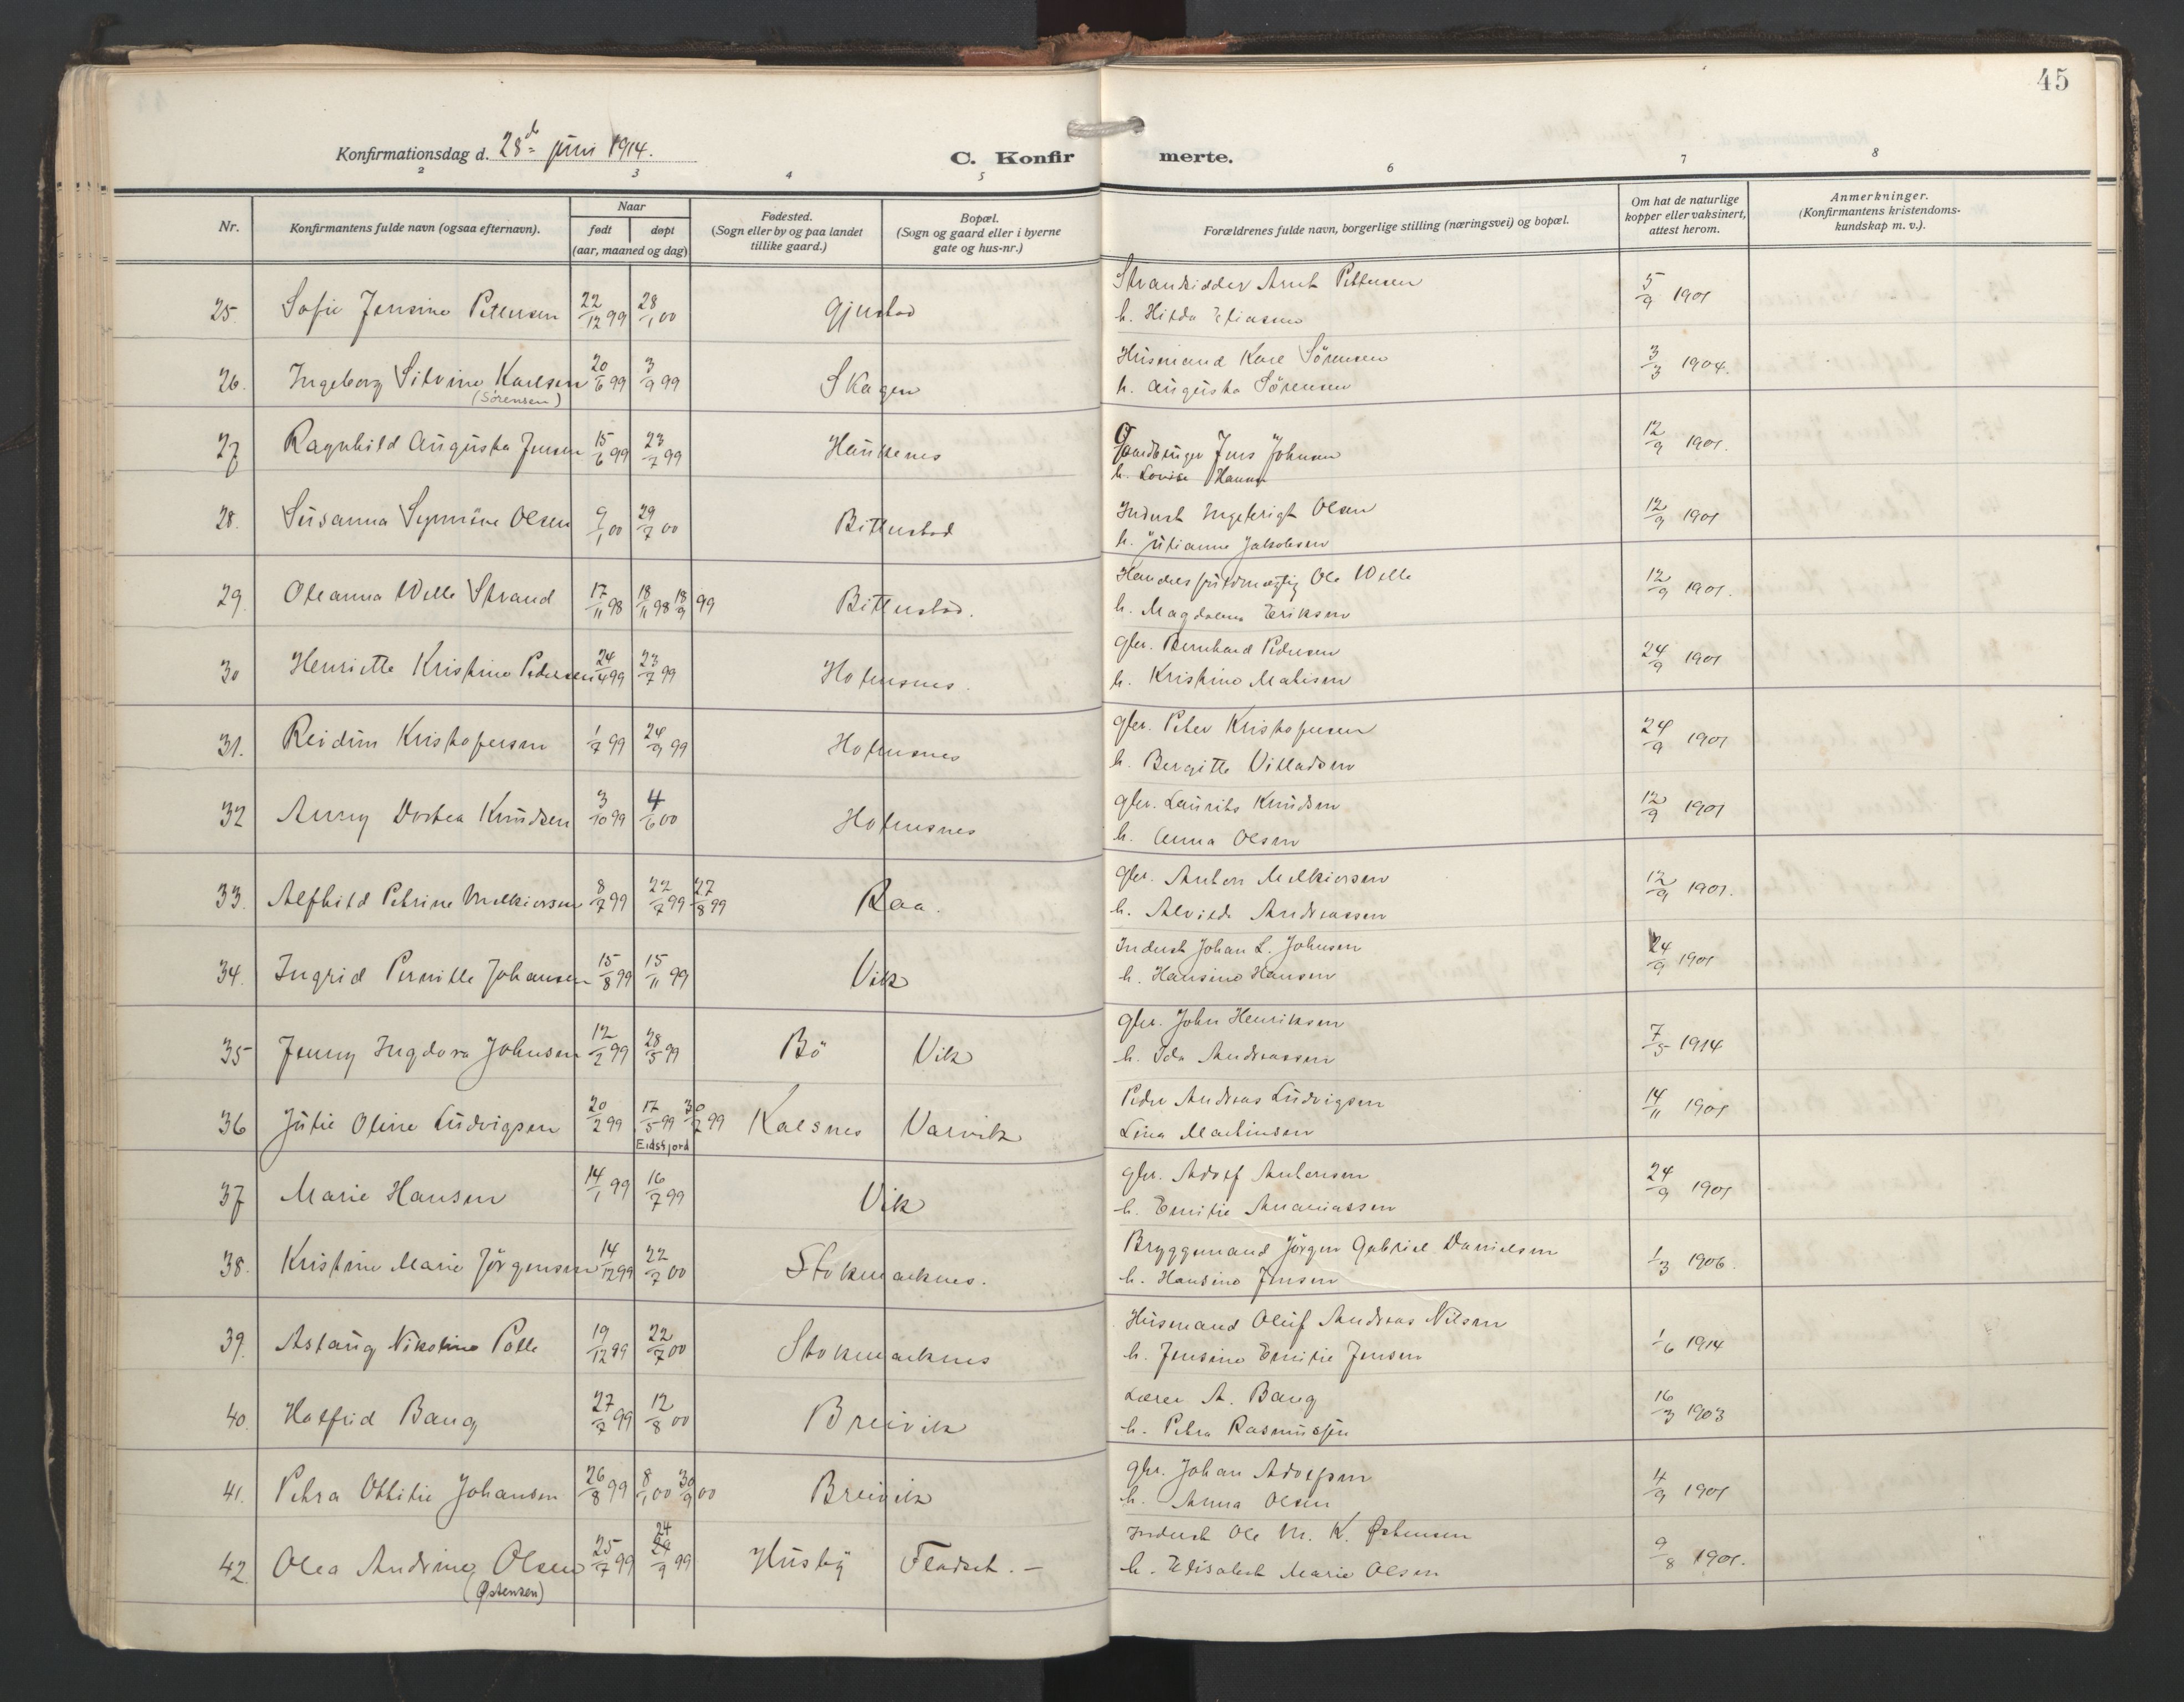 45
Konfirmationsdag d. 28de juni 1914.
C. Konfirmerte.
2 3 4 5 6 7 8
Nr.
Konfirmantens fulde navn (ogsaa efternavn).
Naar
født
døpt
(aar, maaned og dag)
Fødested.
(Sogn eller by og paa landet
tillike gaard.)
Bopæl.
(Sogn og gaard eller i byerne
gate og hus-nr.)
Forældrenes fulde navn, borgerlige stilling (næringsvei) og bopæl.
Om hat de naturlige
kopper eller vaksinert,
attest herom.
Anmerkninger.
(Konfirmantens kristendoms-
kundskap m. v.).
25. Sofie Jensine Pettersen 22/12 99 28/1 00 Gjerstad Strandsidder Arnt Pettersen 5/9 1901
h. Hilda Eliasen
26. Ingeborg Silvine Karlsen 20/6 99 3/9 99 Skagen Husmand Karl Sörensen 3/3 1904.
(Sörensen) h. Augusta Sörensen
27 Ragnhild Augusta Jensen 15/6 99 23/7 99 Haukenes Gaardbruger Jens Johnsen 12/9 1901.
h. Lovise Hansen
28. Susanna Synnöve Olsen 9/1 00 29/7 00 Bitterstad Inderst Ingebrigt Olsen 12/9 1901
h. Julianne Jakobsen
29. Oleanna Welle Strand 17/11 98 18/11 98 18/9 99 Bitterstad. Handelsfuldmægtig Ole Welle 12/9 1901.
h. Magdalena Eriksen
30 Henriette Kristine Pedersen 24/4 99 23/7 99 Holmsnes. gbr. Bernhard Pedersen 24/9 1901
h. Kristine Matisen
31. Reidun Kristofersen 1/7 99 24/9 99 Holmsnes gbr. Peter Kristofersen 24/9 1901
h. Bergitte Villadsen
32 Anny Dortea Knudsen 3/10 99 4/6 00 Holmsnes gbr. Laurits Knudsen 12/9 1901
h. Anna Olsen
33. Alfhild Petrine Melkiorsen 8/7 99 22/7 99 27/8 99 Raa. gbr. Anton Melkiorsen 12/9 1901.
h. Alvilde Andreassen
34. Ingrid Pernille Johansen 15/8 99 15/11 99 Vik Inderst Johan L. Johnsen 24/9 1901
h. Hansine Hansen
35 Jenny Ingdora Johnsen 12/2 99 28/5 99 Bö Vik gbr. John Henriksen 7/5 1914
h. Ida Andreassen
36 Julie Oline Ludvigsen 20/2 99 17/5 99 30/7 99 Kalsnes Varvik Peder Andreas Ludvigsen 14/11 1901
Eidsfjord Lina Martinsen
37 Marie Hansen 14/1 99 16/7 99 Vik gbr. Adolf Antonsen 24/9 1901
h. Emilie Ananiassen
38. Kristine Marie Jörgensen 14/12 99 22/7 00 Stokmarknes. Bryggemand Jörgen Gabriel Danielsen 1/3 1906.
h. Hansine Jensen
39. Aslaug Nikoline Polle 19/12 99 22/7 00 Stokmarknes Husmand Oluf Andreas Nilsen 1/6 1914
h. Jensine Emilie Jensen
40. Holfrid Bang 27/7 99 12/8 00 Breivik Lærer A. Bang 16/3 1903
h. Petra Rasmussen
41. Petra Ottilie Johansen 26/8 99 8/1 00 30/9 00 Breivik gbr. Johan Adolfsen 4/9 1901
h. Anna Olsen
42. Olea Andrine Olsen 25/7 99 24/9 99 Husby Fladset. – Inderst Ole M. K. Østensen 9/8 1901.
(Østensen) h. Elisabet Marie Olsen